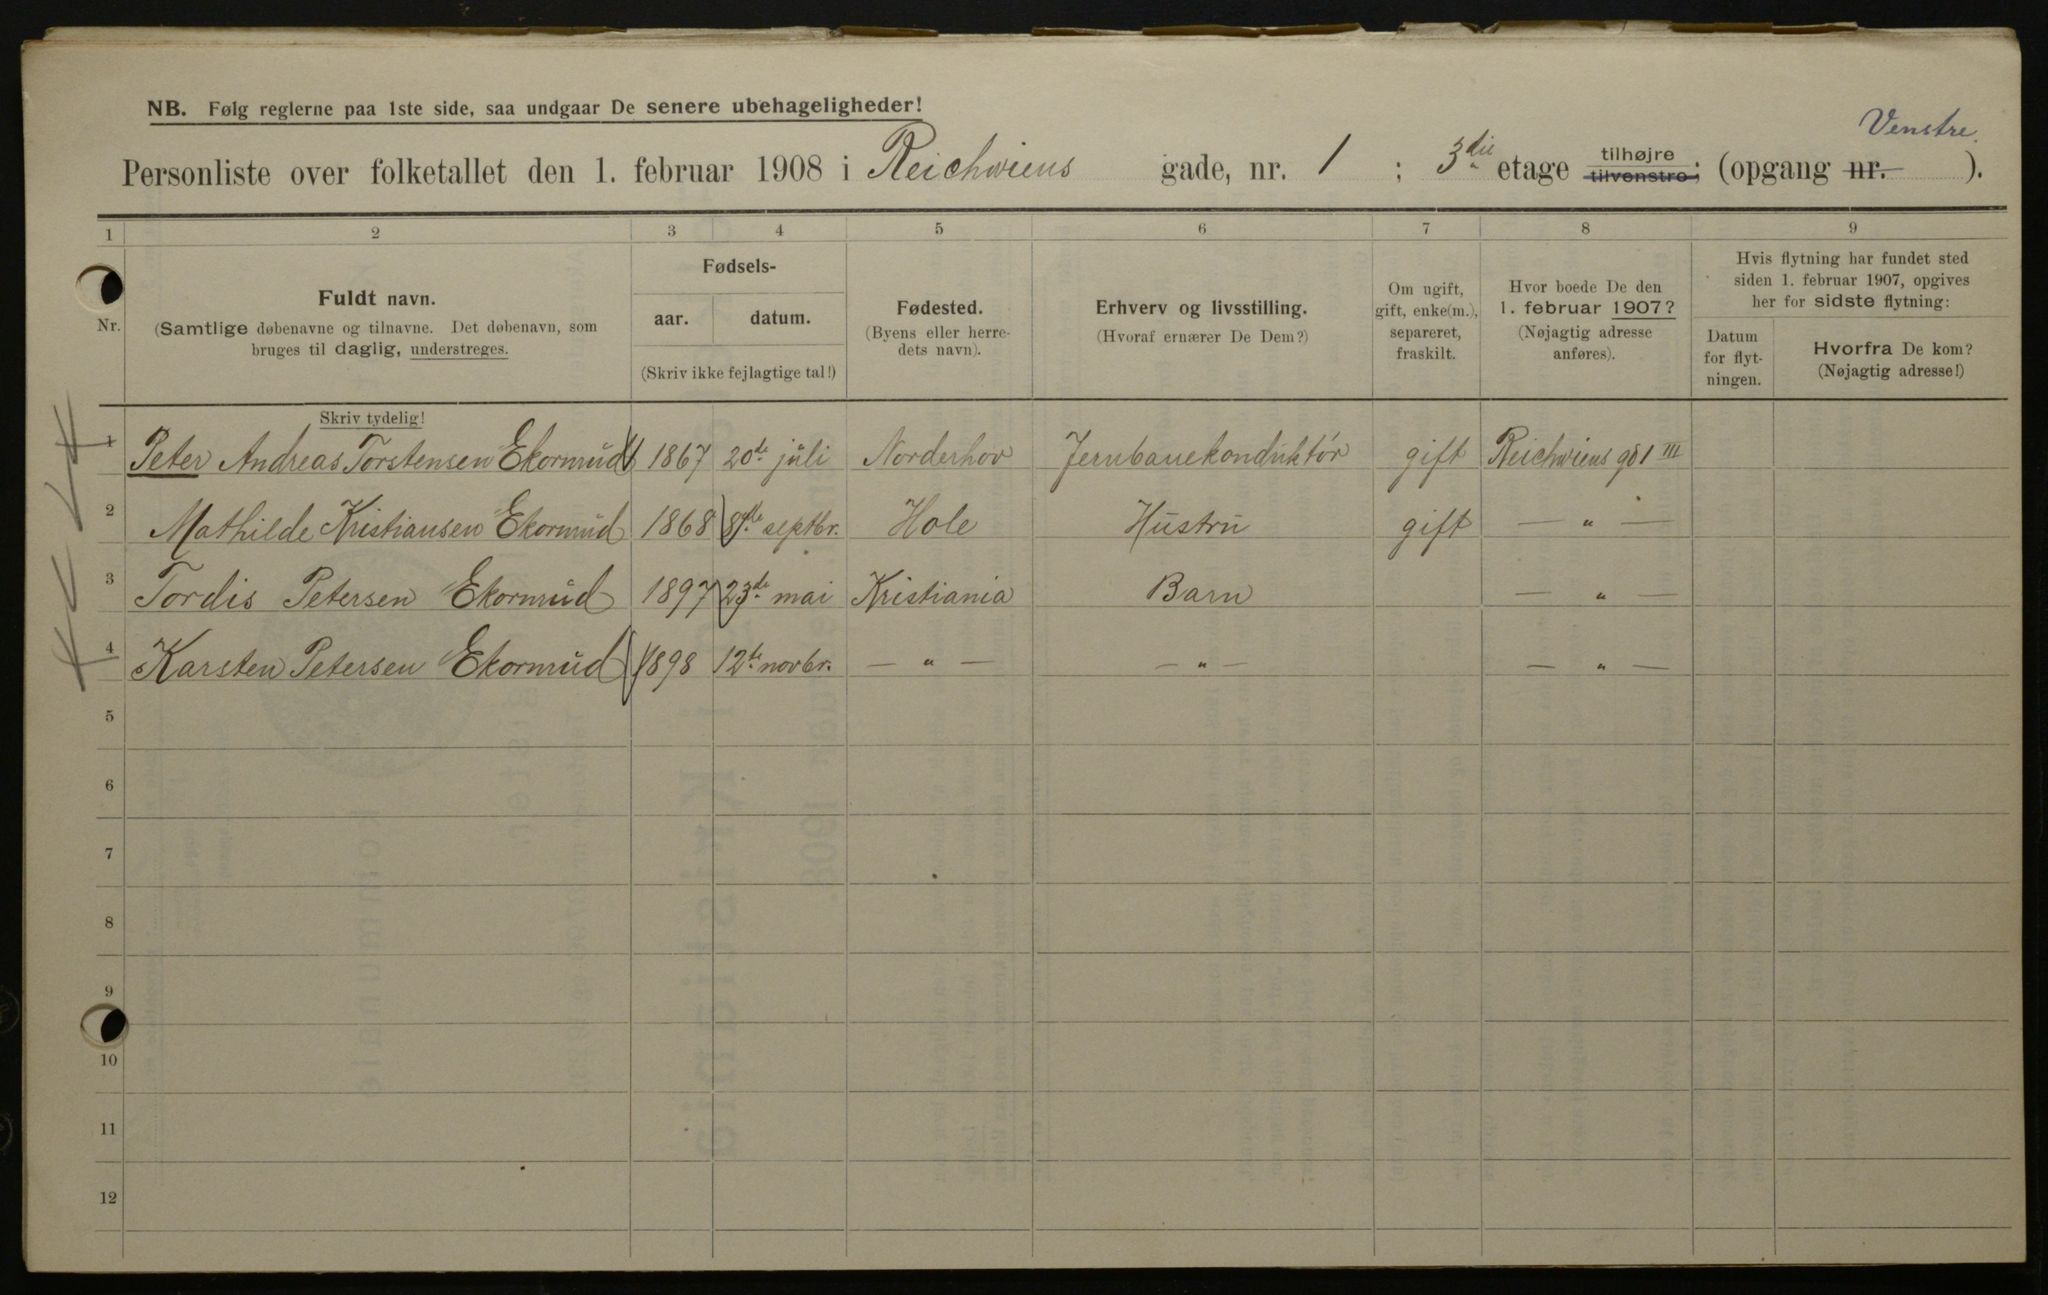 NB. Følg reglerne paa 1ste side, saa undgaar De senere ubehageligheder!
Venstre.
Personliste over folketallet den 1. februar 1908 i Reichwiens gade, nr. 1 ; 3die etage tilhøjre tilvenstre; (opgang nr. ).
1 2 3 4 5 6 7 8 9
Nr.
Fuldt navn.
(Samtlige døbenavne og tilnavne. Det døbenavn, som
bruges til daglig, understreges.
Skriv tydelig!
Fødsels-
aar. datum.
(Skriv ikke fejlagtige tal!)
Fødested.
(Byens eller herre-
dets navn).
Erhverv og livsstilling.
(Hvoraf ernærer De Dem?)
Om ugift,
gift, enke(m.),
separeret,
fraskilt.
Hvor boede De den
1. februar 1907?
(Nøjagtig adresse
anføres).
Hvis flytning har fundet sted
siden 1. februar 1907, opgives
her for sidste flytning:
Datum
for flyt-
ningen.
Hvorfra De kom?
(Nøjagtig adresse!)
1 Peter Andreas Torstensen Ekornrud 1867 20de juli Norderhov Jernbanekonduktør gift Reichwiens gd 1 III
2 Mathilde Kristiansen Ekornrud 1868 8de septbr. Hole Hustru gift — " —
3 Tordis Petersen Ekornrud 1897 23de mai Kristiania Barn — " —
4 Karsten Petersen Ekornrud 1898 12te novbr. — " — — " — — " —
5
6
7
8
9
10
11
12